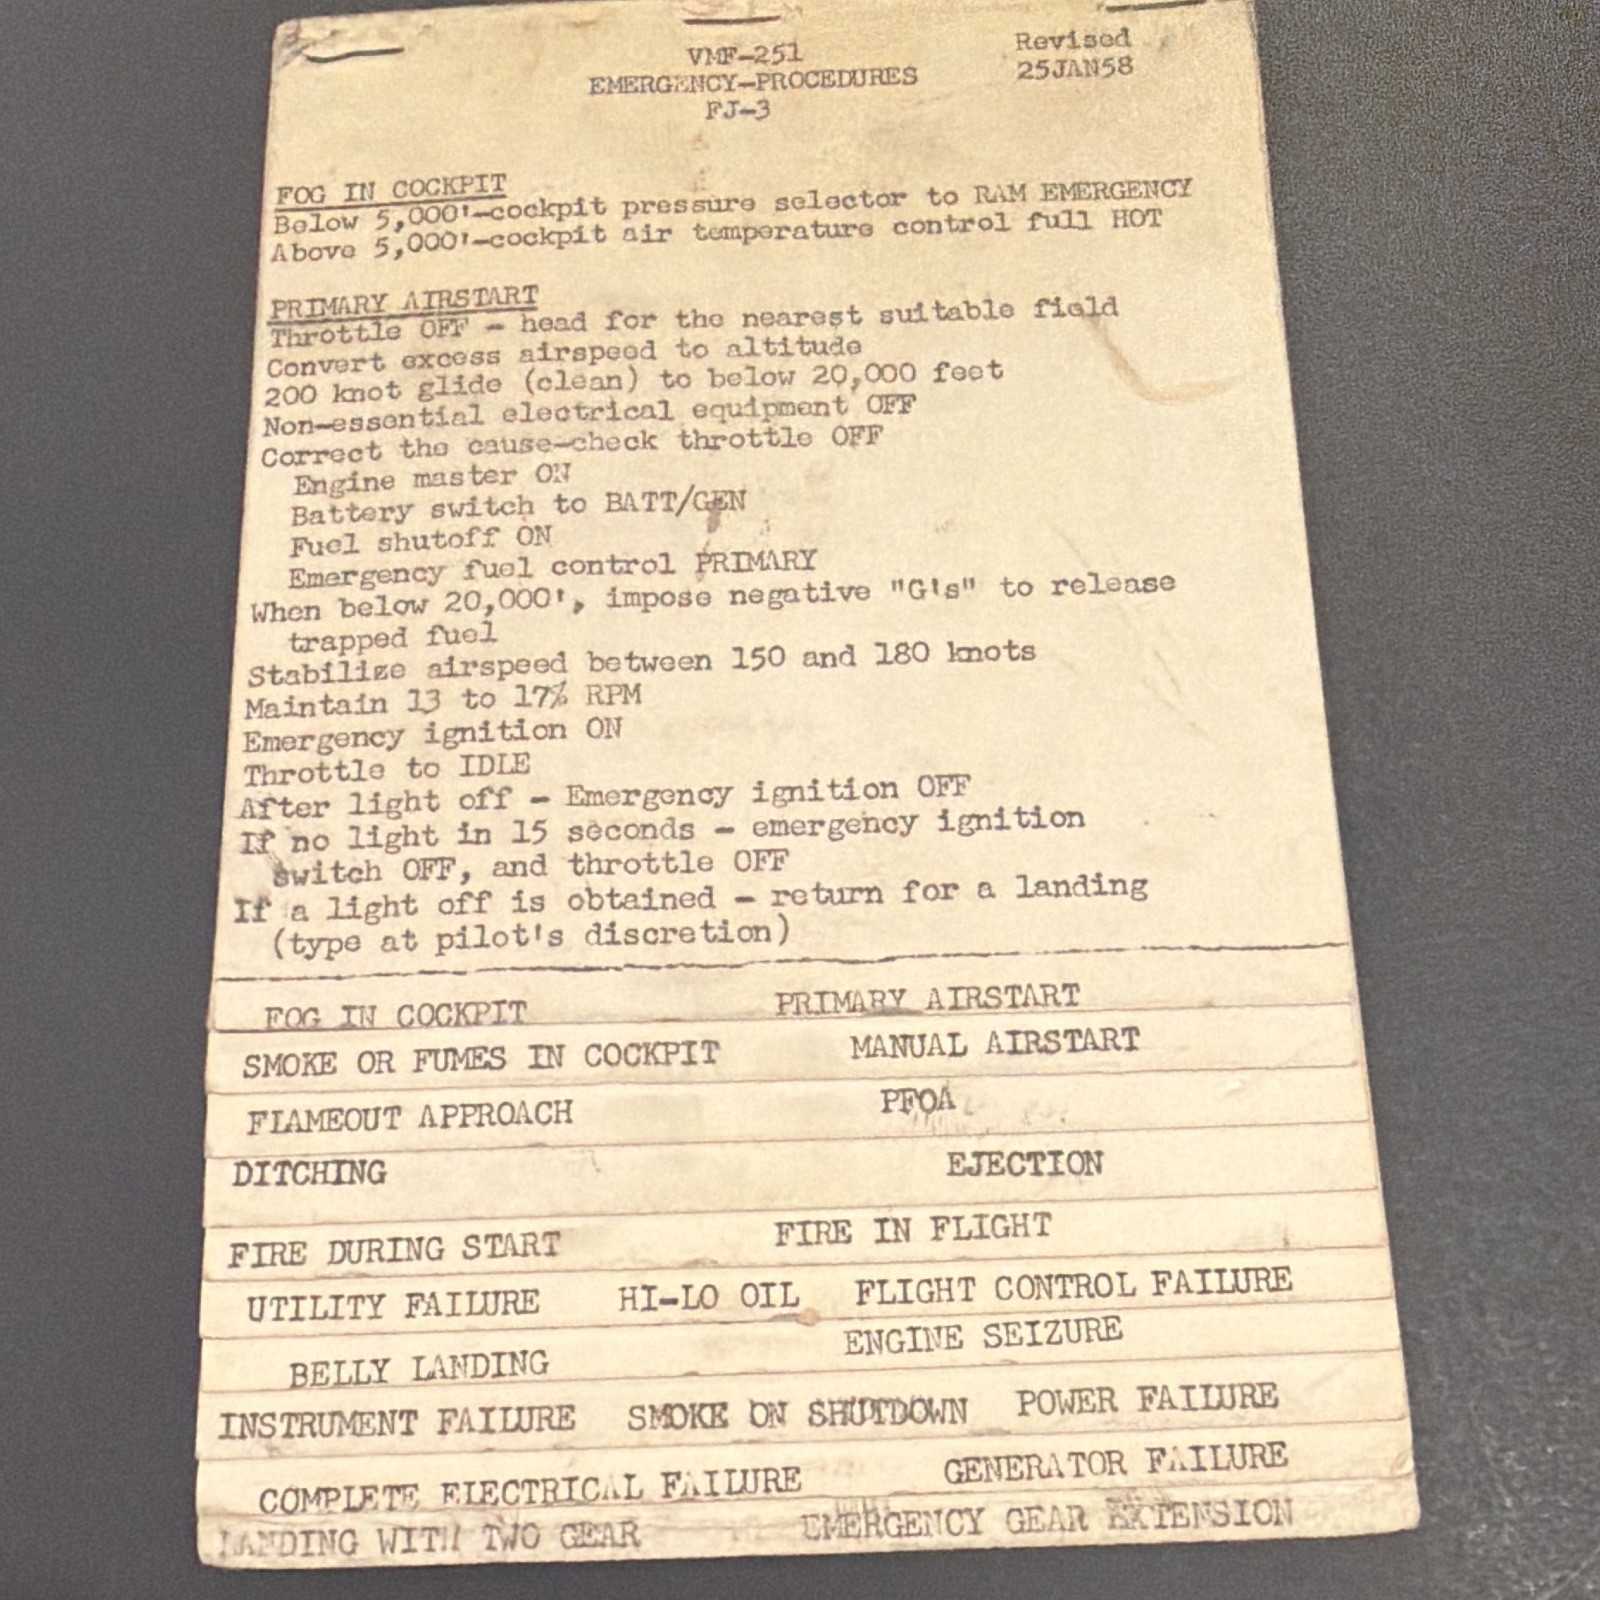 VMF-251
Revised
EMERGENCY-PROCEDURES
25JAN58
FJ-3
FOG IN COCKPIT
Below 5,000'-cockpit pressure selector to RAM EMERGENCY
Above 5,000'-cockpit air temperature control full HOT
PRIMARY AIRSTART
Throttle OFF - head for the nearest suitable field
Convert excess airspeed to altitude
200 knot glide (clean) to below 20,000 feet
Non-essential electrical equipment OFF
Correct the cause-check throttle OFF
Engine master ON
Battery switch to BATT/GEN
Fuel shutoff ON
Emergency fuel control PRIMARY
When below 20,000', impose negative "G's" to release
trapped fuel
Stabilize airspeed between 150 and 180 knots
Maintain 13 to 17% RPM
Emergency ignition ON
Throttle to IDLE
After light off - Emergency ignition OFF
If no light in 15 seconds - emergency ignition
switch OFF, and throttle OFF
If a light off is obtained - return for a landing
(type at pilot's discretion)
FOG IN COCKPIT PRIMARY AIRSTART
SMOKE OR FUMES IN COCKPIT MANUAL AIRSTART
FLAMEOUT APPROACH PFOA
DITCHING EJECTION
FIRE DURING START FIRE IN FLIGHT
UTILITY FAILURE HI-LO OIL FLIGHT CONTROL FAILURE
BELLY LANDING ENGINE SEIZURE
INSTRUMENT FAILURE SMOKE ON SHUTDOWN POWER FAILURE
COMPLETE ELECTRICAL FAILURE GENERATOR FAILURE
LANDING WITH TWO GEAR EMERGENCY GEAR EXTENSION